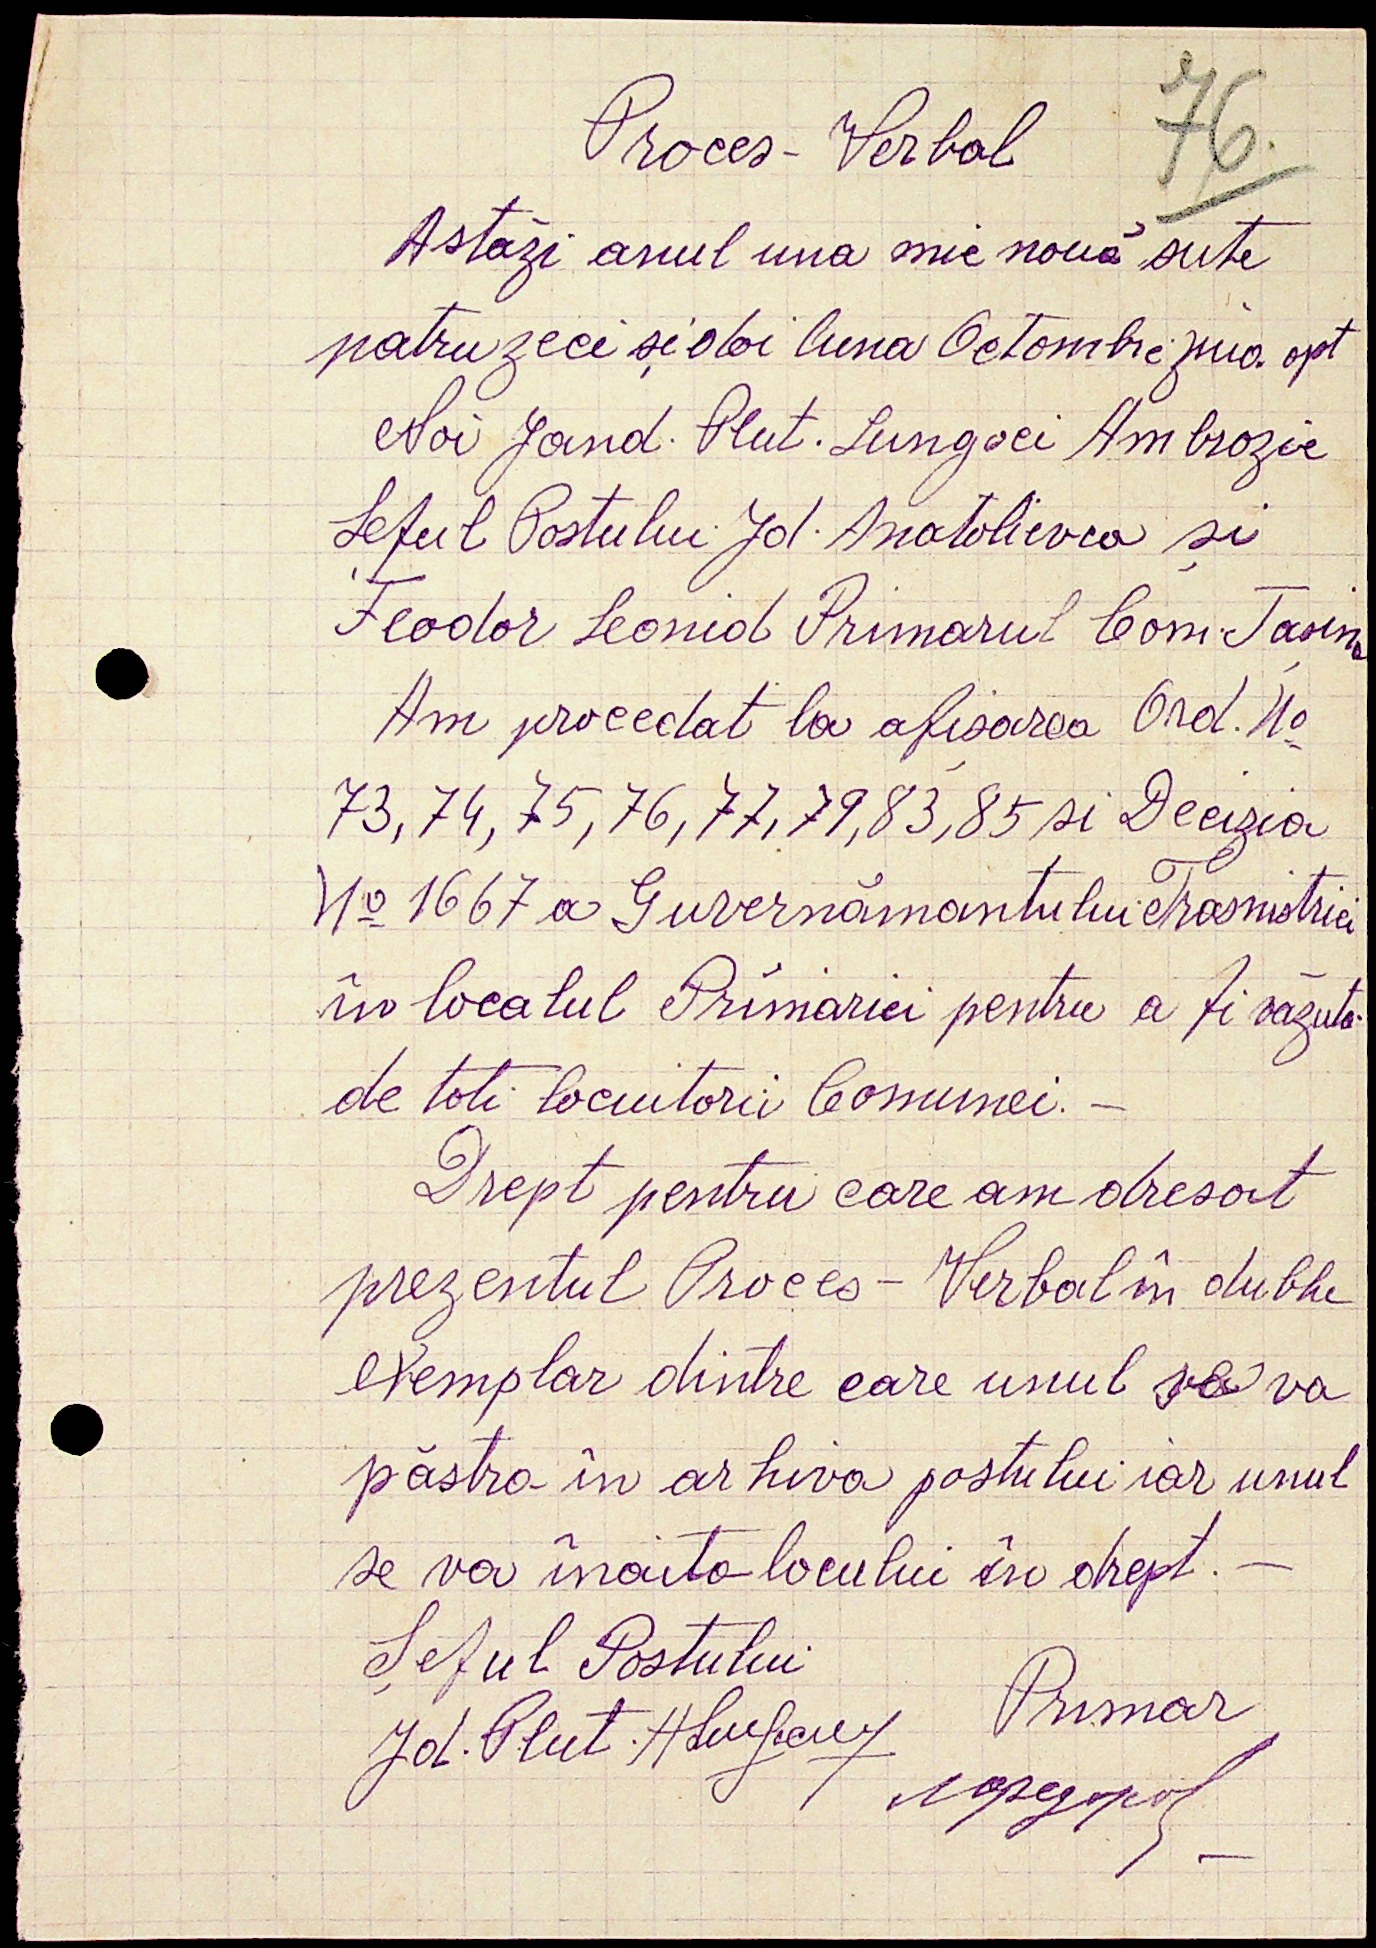 76.
Proces - Verbal
Astăzi anul una mie nouă sute
patruzeci și doi luna Octombrie ziua opt
Noi Jand. Plut. Lungoci Ambrozie
Șeful Postului Jd. Anatolievca și
Feodor Leonid Primarul Com. Tașino
Am procedat la afișarea Ord. No
73, 74, 75, 76, 77, 79, 83, 85 si Decizia
No 1667 a Guvernămantului Trasnistriei
în localul Primăriei pentru a fi văzute
de toti locuitorii Comunei. —
Drept pentru care am dresat
prezentul Proces - Verbal în dublu
exemplar dintre care unul se va
păstra în arhiva postului iar unul
se va înaita locului în drept. —
Șeful Postului
Jd. Plut.
Primar